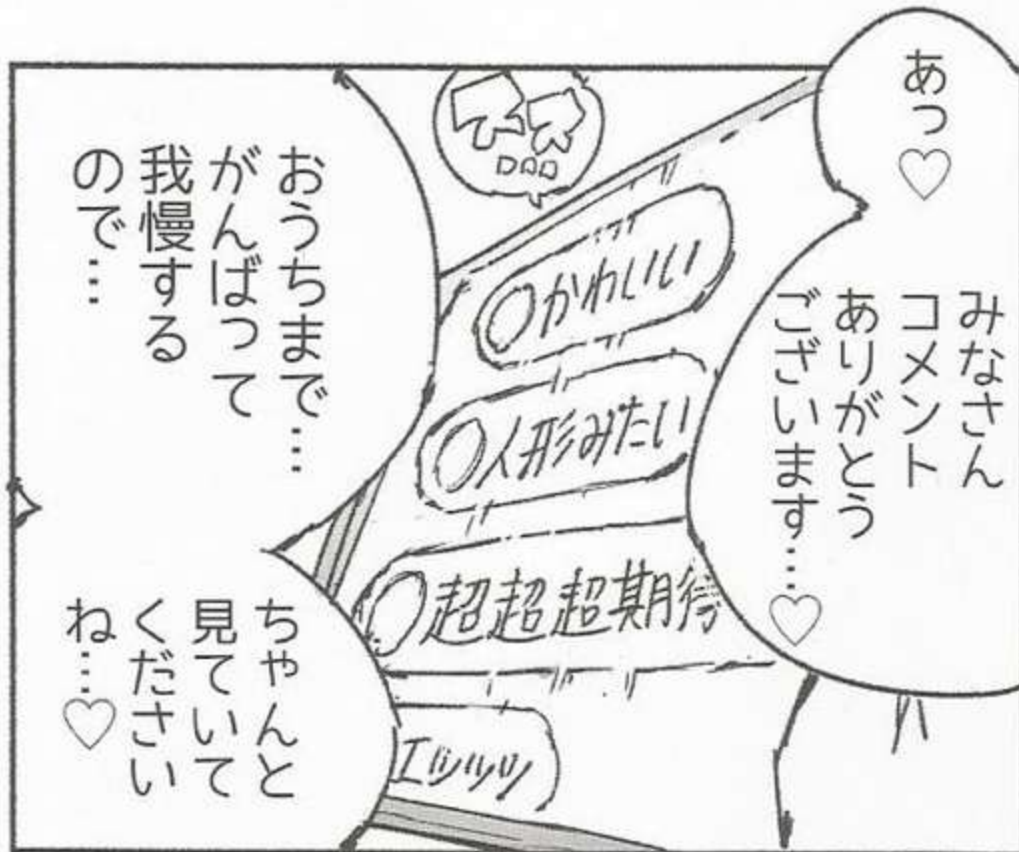 あっ♡
みなさん
コメント
ありがとう
ございます…♡
かわいい
人形みたい
超超超期待
エッッッ
おうちまで…
がんばって
我慢する
ので…
ちゃんと
見ていて
ください
ね…♡